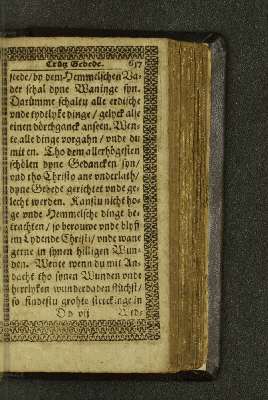 Crütz Gebede. 637
stede/ by dem Hemmelschen Va-
der schal dyne Waninge syn.
Darümme schaltu alle erdische
vnde tydtlyke dinge/ gelyck alse
einen dörchganck anseen. Wen-
te alle dinge vorgahn/ vnde du
mit en. Tho dem allerhögesten
schölen dyne Gedancken syn/
vnd tho Christo ane vnderlath/
dyne Gebede gerichtet vnde ge-
lecht werden. Kanstu nicht ho-
ge vnde Hemmelsche dinge be-
trachten/ so vorouwe vnde blyff
im Lydende Christi/ vnde wane
gerne in synen hilligen Wun-
den. Wente wenn du mit An-
dacht tho synen Wunden vnde
herrlyken wunderdaden flüchst/
so findestu grohte sterckinge in
Dd vij Wed-